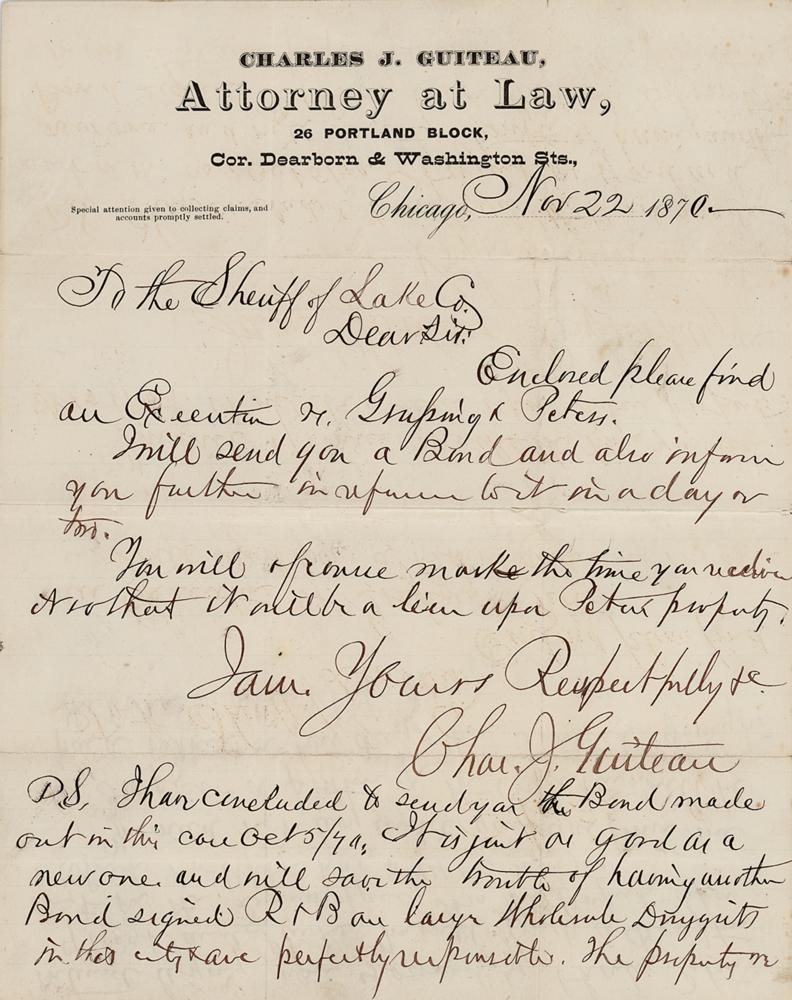 CHARLES J. GUITEAU,
Attorney at Law,
26 PORTLAND BLOCK,
Cor. Dearborn & Washington Sts.,
Special attention given to collecting claims, and
accounts promptly settled.
Chicago, Nov 22 1870
To the Sheriff of Lake Co.
Dear Sir.
Enclosed please find
an Execution vs. & Peters.
I will send you a Bond and also inform
you further in reference to it in a day or
two.
You will of course mark the time you receive
it so that it will be a lien upon Peters property.
I am. Yours Respectfully &c
Chas. J. Guiteau
P.S. I have concluded to send you the Bond made
out in this case Oct 5/70. It is just as good as a
new one and will save the trouble of having another
Bond signed. R & B are large Wholesale Druggists
in this city & are perfectly responsible. The property we